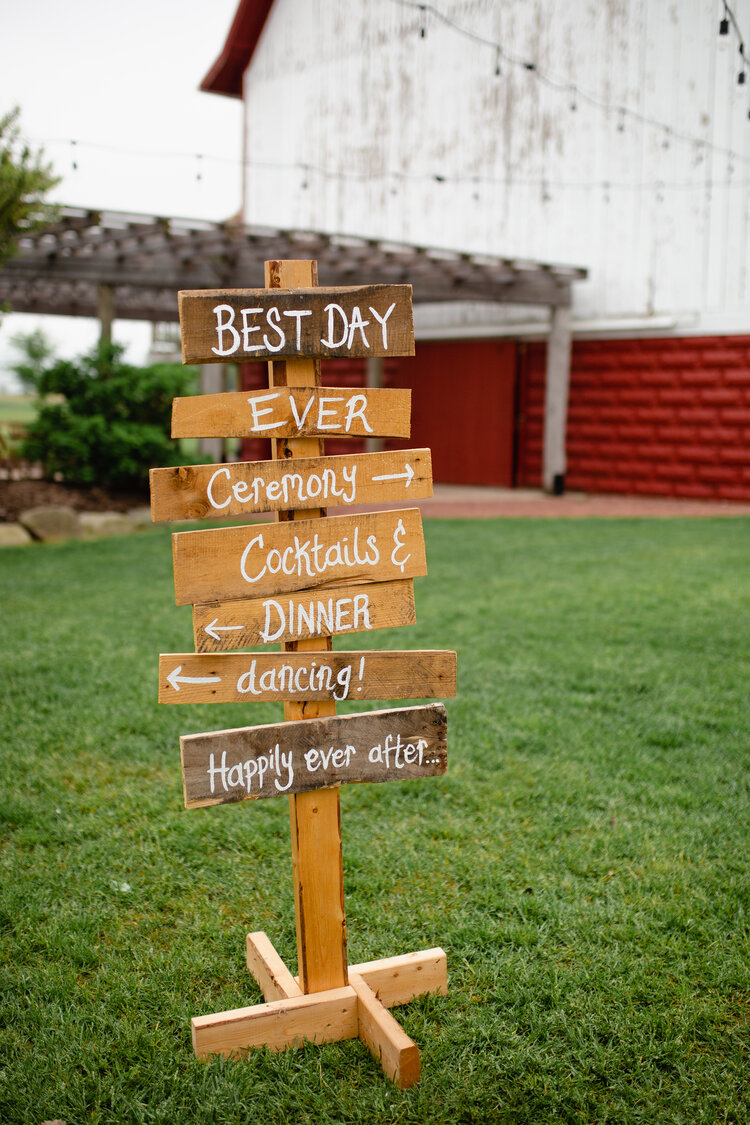 BEST DAY
EVER
Ceremony →
Cocktails &
← DINNER
← dancing!
Happily ever after...